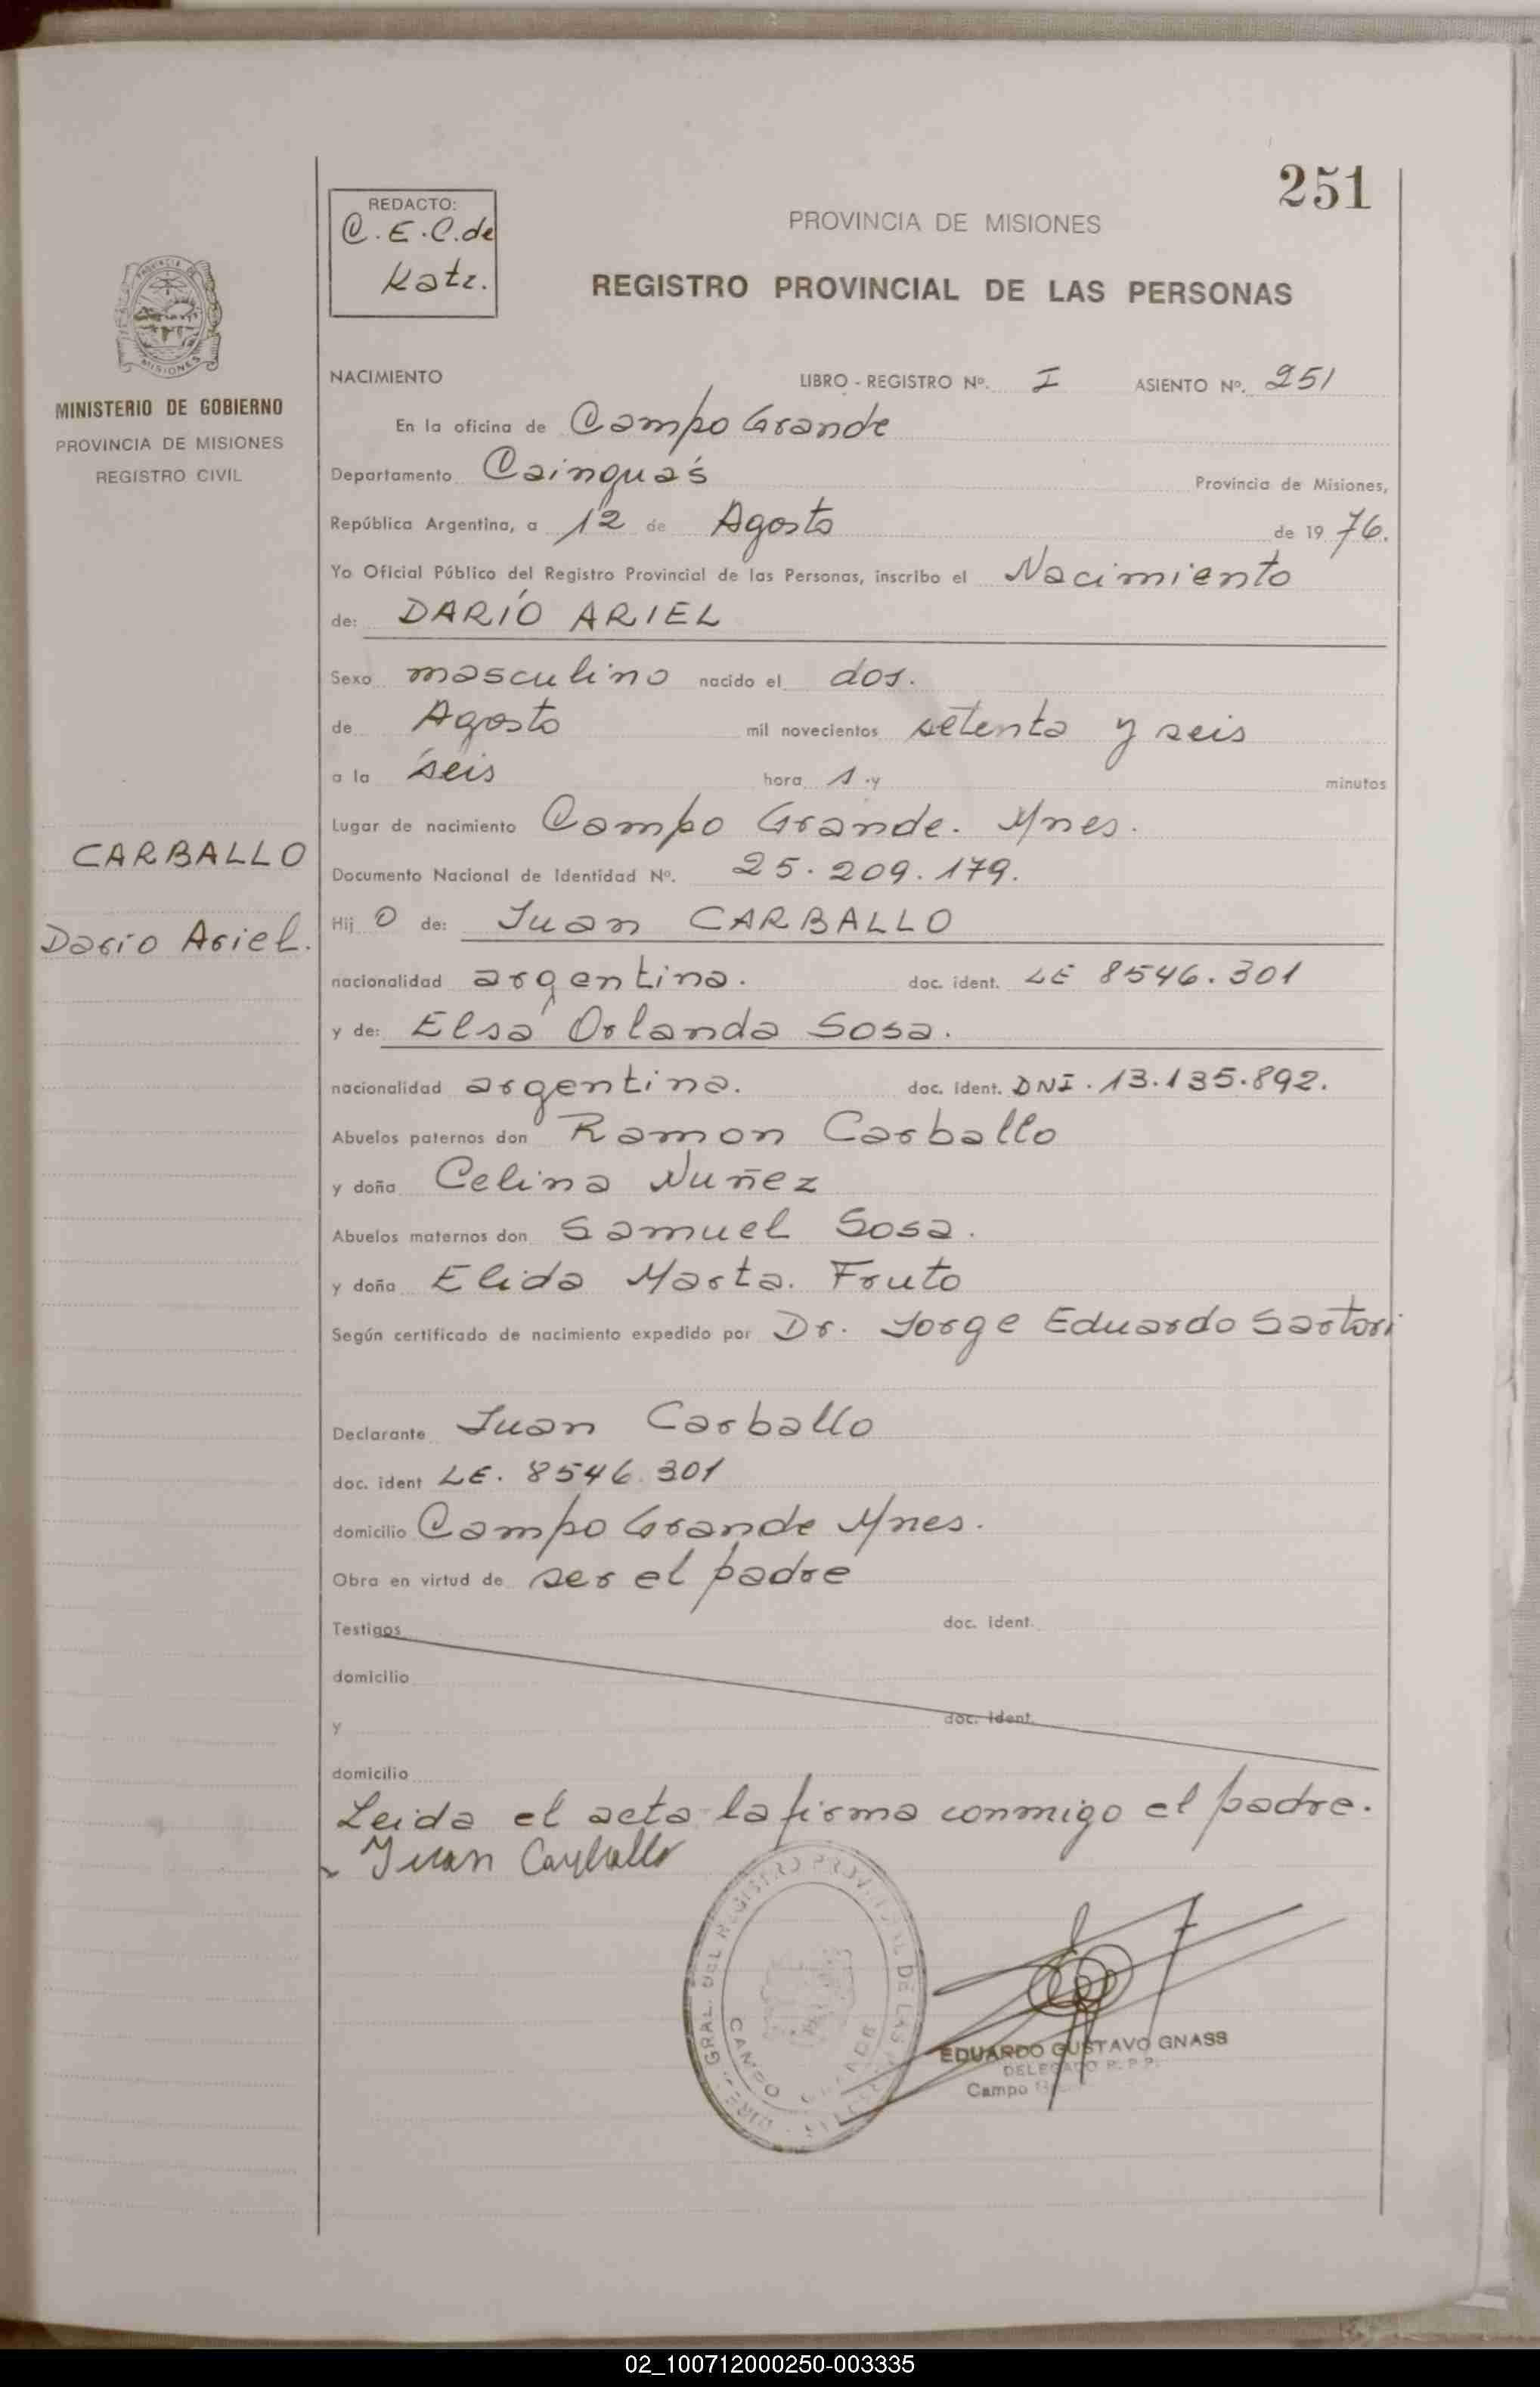 251
REDACTO:
C.E.C. de
Katz.
PROVINCIA DE MISIONES
REGISTRO PROVINCIAL DE LAS PERSONAS
MISIONES
MINISTERIO DE GOBIERNO
PROVINCIA DE MISIONES
REGISTRO CIVIL
NACIMIENTO LIBRO - REGISTRO Nº. I ASIENTO Nº. 251
En la oficina de Campo Grande
Departamento Cainguás Provincia de Misiones,
República Argentina, a 12 de Agosto de 1976.
Yo Oficial Público del Registro Provincial de las Personas, inscribo el Nacimiento
de: DARÍO ARIEL
Sexo masculino nacido el dos.
de Agosto mil novecientos setenta y seis
a la seis hora s y minutos
Lugar de nacimiento Campo Grande. Mnes.
CARBALLO
Documento Nacional de Identidad Nº. 25.209.179.
Hij o de: Juan CARBALLO
Dario Ariel.
nacionalidad argentina. doc. ident. LE 8546.301
y de: Elsa Orlanda Sosa.
nacionalidad argentina. doc. ident. DNI. 13.135.892.
Abuelos paternos don Ramon Carballo
y doña Celina Nuñez
Abuelos maternos don Samuel Sosa.
y doña Elida Marta. Fruto
Según certificado de nacimiento expedido por Dr. Jorge Eduardo Sartori
Declarante Juan Carballo
doc. ident LE. 8546.301
domicilio Campo Grande Mnes.
Obra en virtud de ser el padre
Testigos doc. ident.
domicilio
y doc. ident.
domicilio
Leida el acta la firma conmigo el padre.
Juan Carballo
DIREC. GRAL. DEL REGISTRO PROVINCIAL DE LAS
CAMPO GRANDE
EDUARDO GUSTAVO GNASS
DELEGADO R. P. P.
Campo
02_100712000250-003335